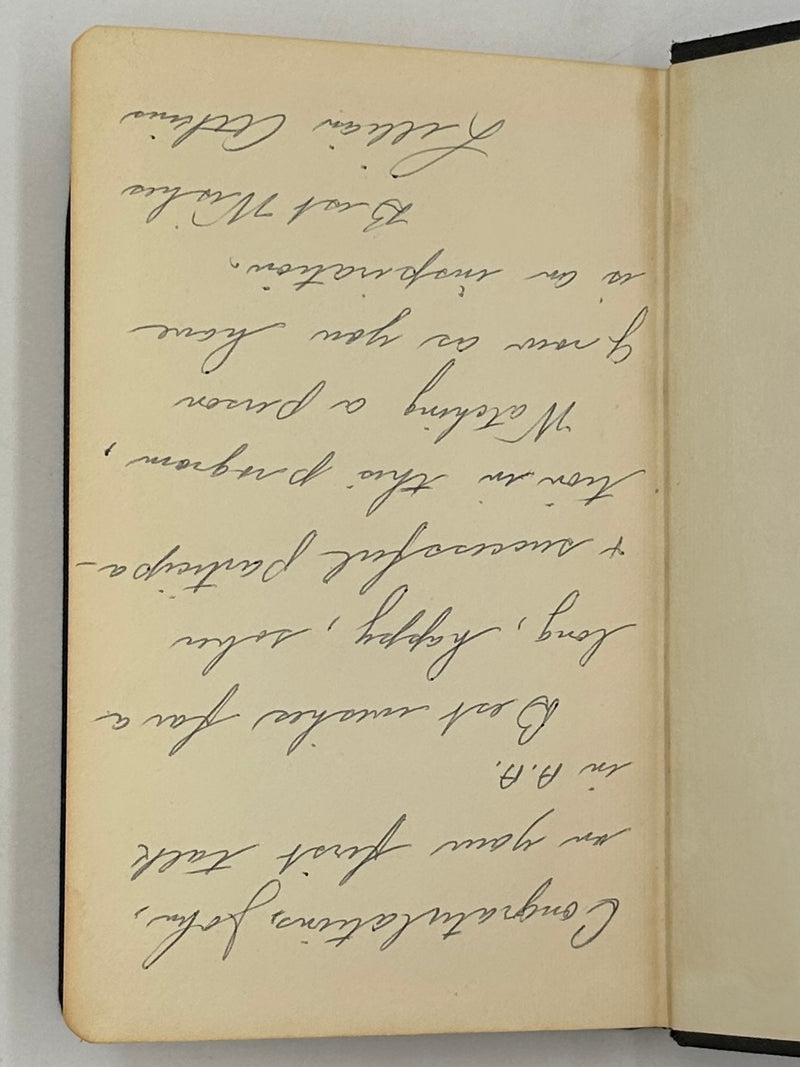 Congratulations, John,
on your first talk
in A.A.
Best wishes for a
long, happy, sober
+ successful participa-
tion in this program,
Watching a person
grow as you have
is an inspiration.
Best Wishes
Lillian